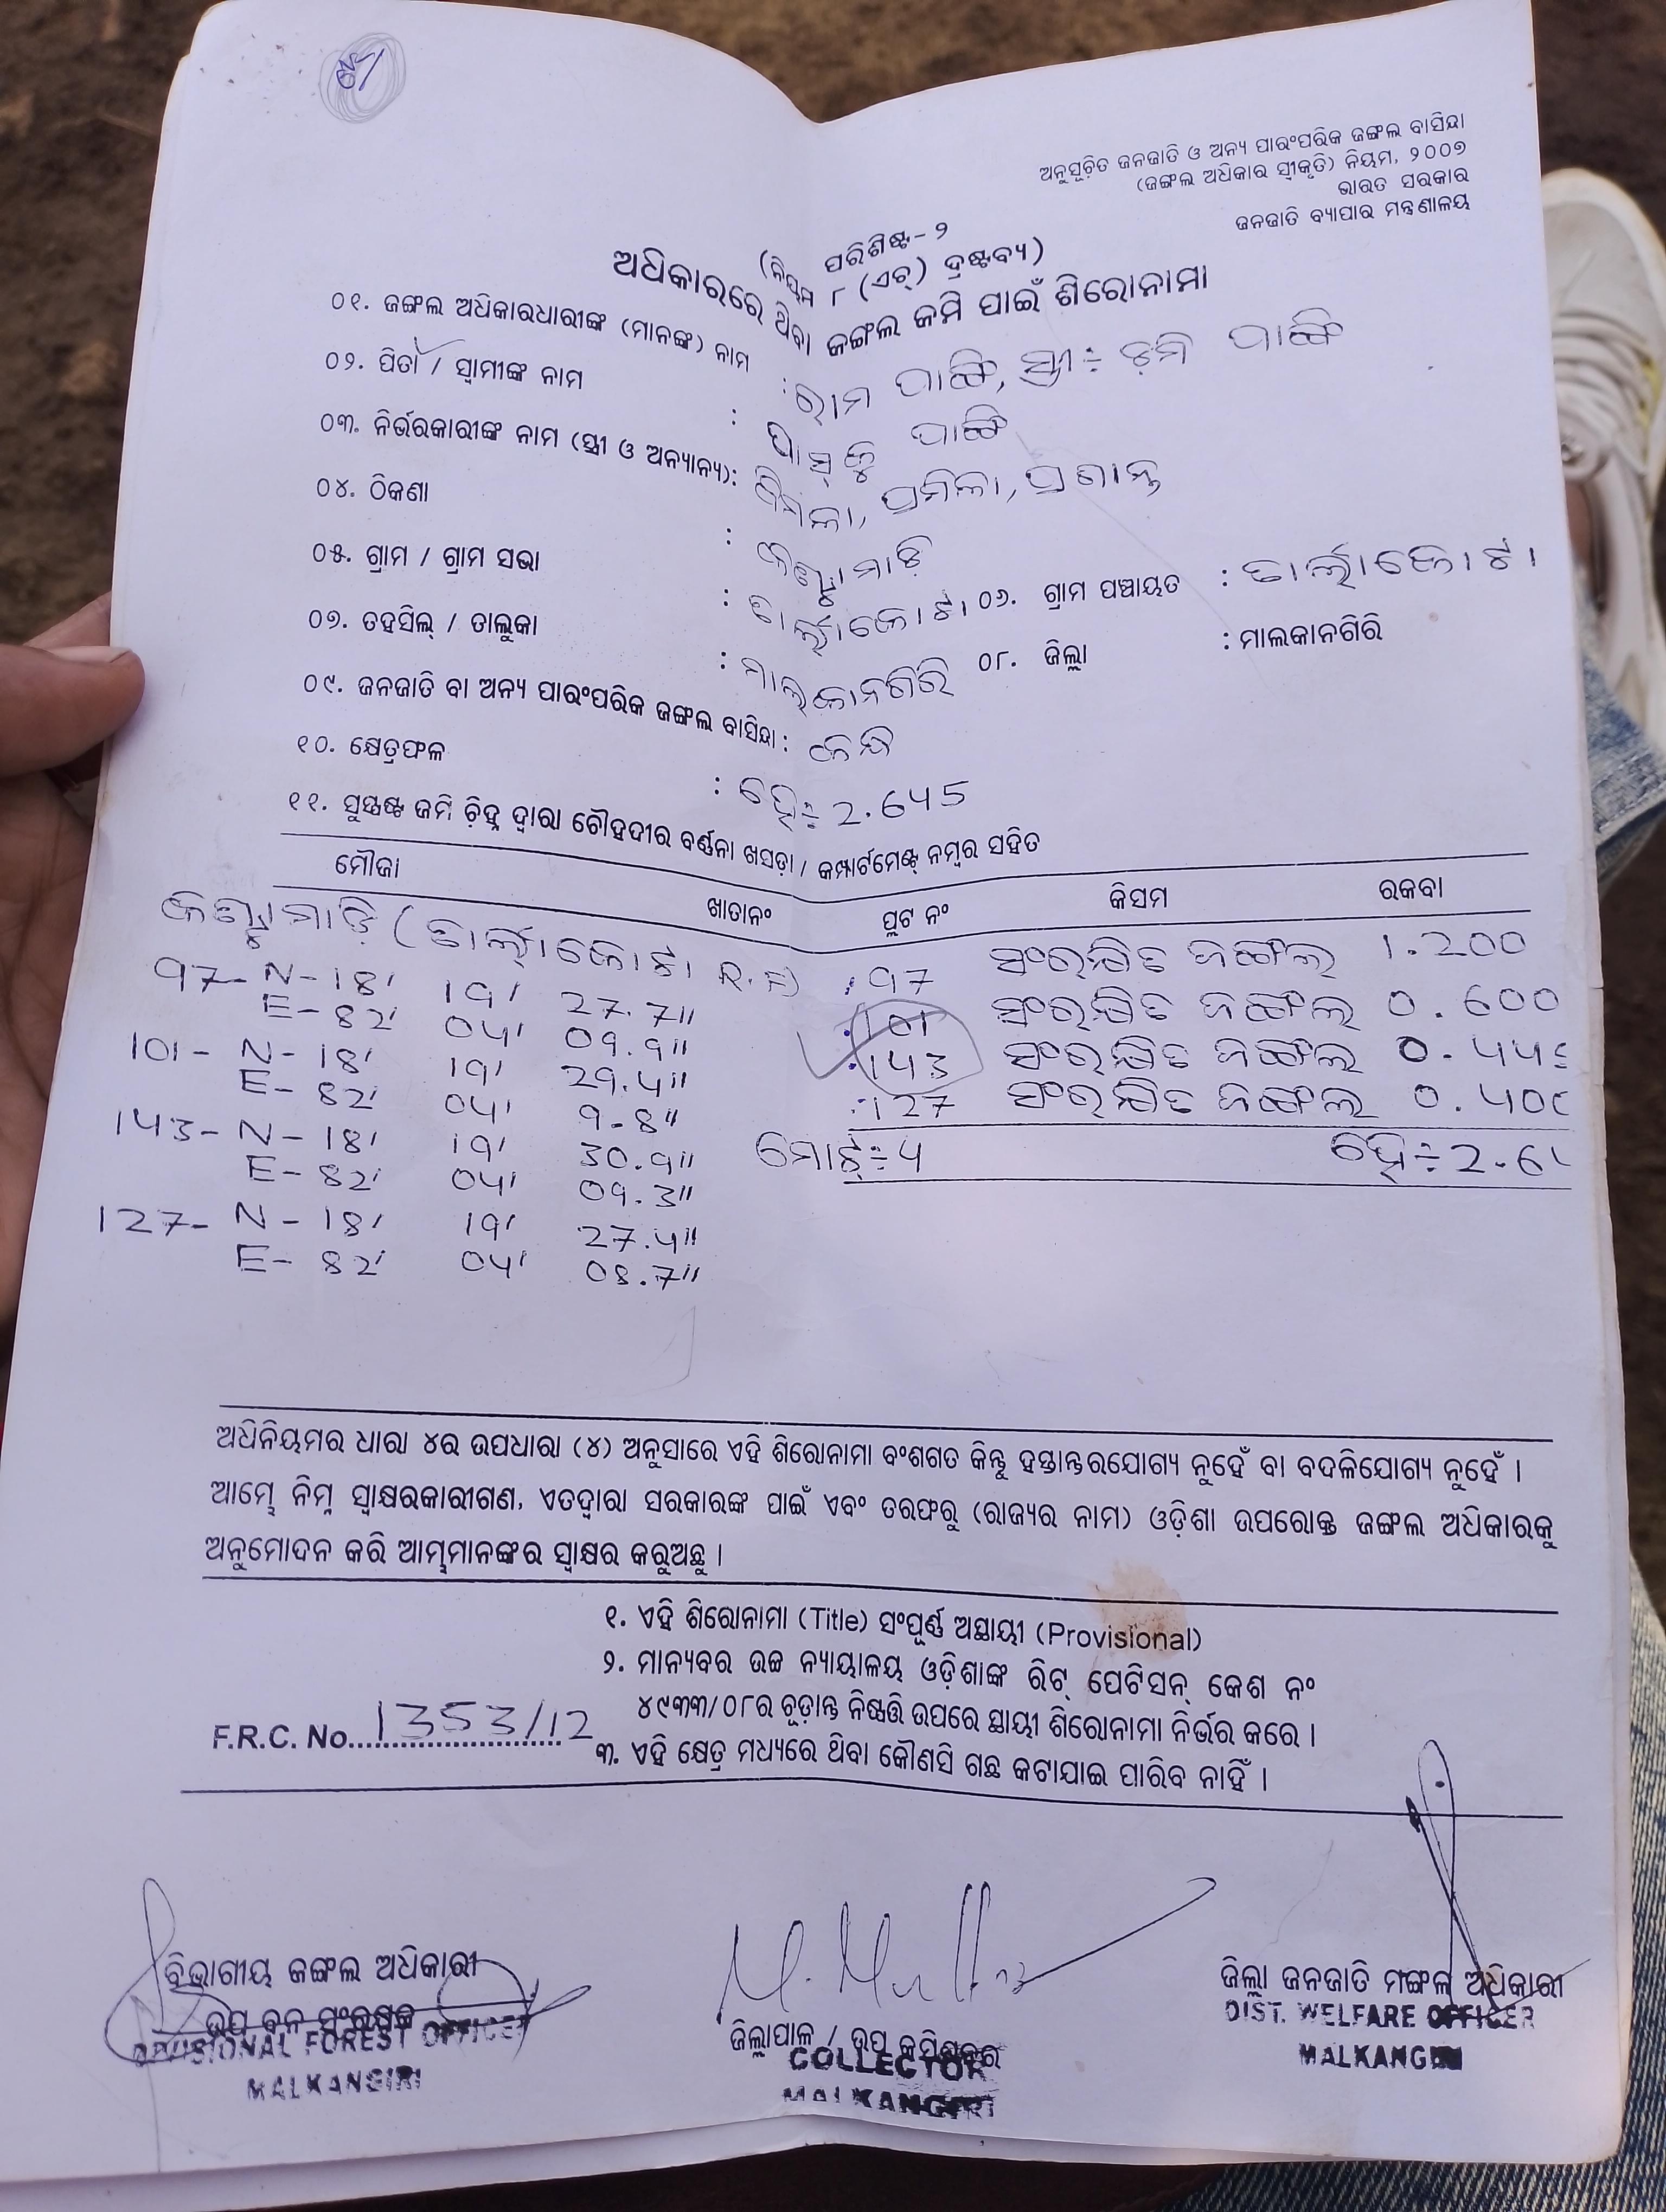 ଅନୁସୂଚିତ ଜନଜାତି ଓ ଅନ୍ୟ ପାରଂପରିକ ଜଙ୍ଗଲ ବାସିନ୍ଦା
(ଜଙ୍ଗଲ ଅଧିକାର ସ୍ୱୀକୃତି) ନିୟମ, ୨୦୦୭
ଭାରତ ସରକାର
ଜନଜାତି ବ୍ୟାପାର ମନ୍ତ୍ରଣାଳୟ
ପରିଶିଷ୍ଟ-୨
(ନିୟମ ୮ (ଏଚ୍) ଦ୍ରଷ୍ଟବ୍ୟ)
ଅଧିକାରରେ ଥିବା ଜଙ୍ଗଲ ଜମି ପାଇଁ ଶିରୋନାମା
୦୧. ଜଙ୍ଗଲ ଅଧିକାରଧାରୀଙ୍କ (ମାନଙ୍କ) ନାମ : ରାମ ପାଙ୍ଗି, ସ୍ତ୍ରୀ÷ ଡ଼ମି ପାଙ୍ଗି
୦୨. ପିତା / ସ୍ୱାମୀଙ୍କ ନାମ : ପାଙ୍ଗି
୦୩. ନିର୍ଭରକାରୀଙ୍କ ନାମ (ସ୍ତ୍ରୀ ଓ ଅନ୍ୟାନ୍ୟ): ବିମଳା, ପ୍ରମିଳା, ପ୍ରଶାନ୍ତ
୦୪. ଠିକଣା :
୦୫. ଗ୍ରାମ / ଗ୍ରାମ ସଭା : ୦୬. ଗ୍ରାମ ପଞ୍ଚାୟତ :
୦୭. ତହସିଲ୍ / ତାଲୁକା : ମାଲକାନଗିରି ୦୮. ଜିଲ୍ଲା : ମାଲକାନଗିରି
୦୯. ଜନଜାତି ବା ଅନ୍ୟ ପାରଂପରିକ ଜଙ୍ଗଲ ବାସିନ୍ଦା :
୧୦. କ୍ଷେତ୍ରଫଳ : ହେ÷ 2.645
୧୧. ସୁସ୍ପଷ୍ଟ ଜମି ଚିହ୍ନ ଦ୍ୱାରା ଚୌହଦୀର ବର୍ଣ୍ଣନା ଖସଡ଼ା / କମ୍ପାର୍ଟମେଣ୍ଟ ନମ୍ବର ସହିତ
ମୌଜା ଖାତାନଂ ପ୍ଲଟ ନଂ କିସମ ରକବା
R.F) :97 ସଂରକ୍ଷିତ ଜଙ୍ଗଲ 1.200
97- N- 18' 19' 27.7" :101 ସଂରକ୍ଷିତ ଜଙ୍ଗଲ 0.600
E- 82' 04' 09.9" :143 ସଂରକ୍ଷିତ ଜଙ୍ଗଲ 0.445
101- N- 18' 19' 29.4" :127 ସଂରକ୍ଷିତ ଜଙ୍ଗଲ 0.400
E- 82' 04' 9-8" ମୋଟ୍÷4 ହେ÷2.64
143- N- 18' 19' 30.9"
E- 82' 04' 09.3"
127- N- 18' 19' 27.4"
E- 82' 04' 08.7"
ଅଧିନିୟମର ଧାରା ୪ର ଉପଧାରା (୪) ଅନୁସାରେ ଏହି ଶିରୋନାମା ବଂଶଗତ କିନ୍ତୁ ହସ୍ତାନ୍ତରଯୋଗ୍ୟ ନୁହେଁ ବା ବଦଳିଯୋଗ୍ୟ ନୁହେଁ ।
ଆମ୍ଭେ ନିମ୍ନ ସ୍ୱାକ୍ଷରକାରୀଗଣ, ଏତଦ୍ୱାରା ସରକାରଙ୍କ ପାଇଁ ଏବଂ ତରଫରୁ (ରାଜ୍ୟର ନାମ) ଓଡ଼ିଶା ଉପରୋକ୍ତ ଜଙ୍ଗଲ ଅଧିକାରକୁ
ଅନୁମୋଦନ କରି ଆମ୍ଭମାନଙ୍କର ସ୍ୱାକ୍ଷର କରୁଅଛୁ ।
୧. ଏହି ଶିରୋନାମା (Title) ସଂପୂର୍ଣ୍ଣ ଅସ୍ଥାୟୀ (Provisional)
୨. ମାନ୍ୟବର ଉଚ୍ଚ ନ୍ୟାୟାଳୟ ଓଡ଼ିଶାଙ୍କ ରିଟ୍ ପେଟିସନ୍ କେଶ ନଂ
୪୯୩୩/୦୮ର ଚୂଡ଼ାନ୍ତ ନିଷ୍ପତ୍ତି ଉପରେ ସ୍ଥାୟୀ ଶିରୋନାମା ନିର୍ଭର କରେ ।
F.R.C. No. 1353/12
୩. ଏହି କ୍ଷେତ୍ର ମଧ୍ୟରେ ଥିବା କୌଣସି ଗଛ କଟାଯାଇ ପାରିବ ନାହିଁ ।
ବିଭାଗୀୟ ଜଙ୍ଗଲ ଅଧିକାରୀ
ଉପ ବନ ସଂରକ୍ଷକ
DIVISIONAL FOREST OFFICER
MALKANGIRI
ଜିଲ୍ଲାପାଳ / ଉପ କମିଶନର
COLLECTOR
MALKANGIRI
ଜିଲ୍ଲା ଜନଜାତି ମଙ୍ଗଳ ଅଧିକାରୀ
DIST. WELFARE OFFICER
MALKANGIRI